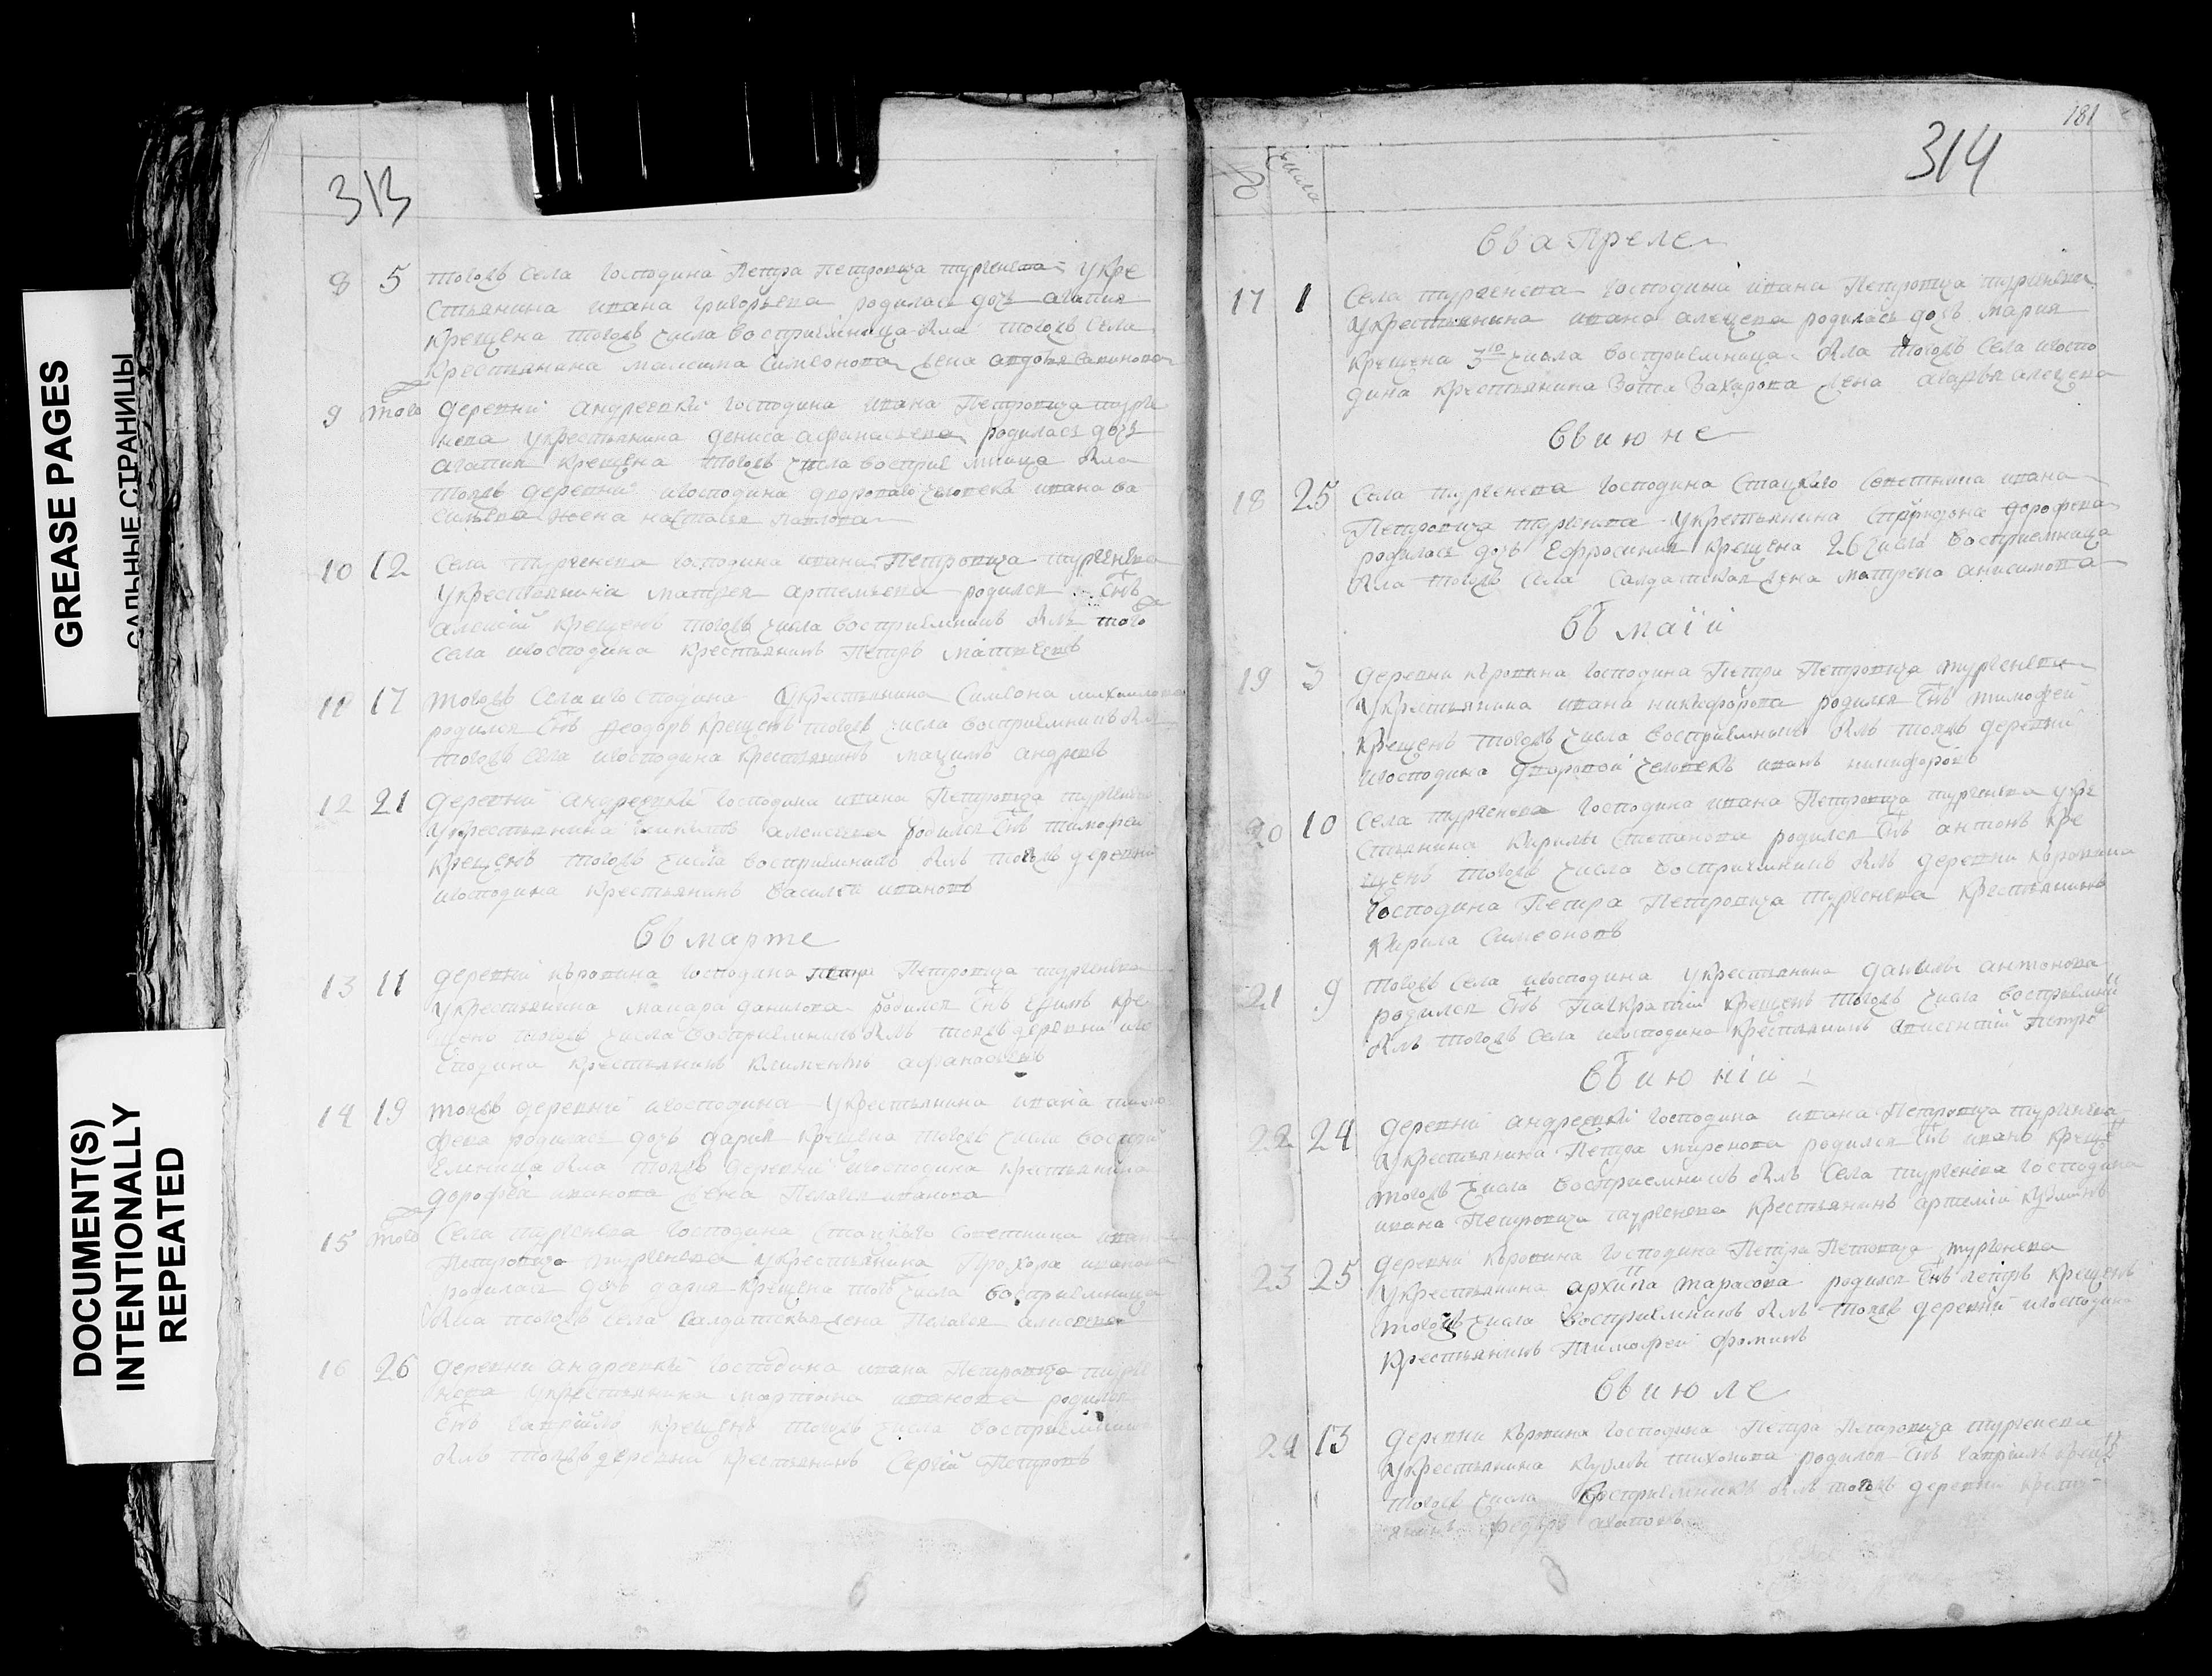 GREASE PAGES
САЛЬНЫЕ СТРАНИЦЫ
DOCUMENT(S)
INTENTIONALLY
REPEATED
313
8 5 тогожъ села господина Петра Петровича тургенева укре
стьянина ивана григорьева родилась дочь агапия
крещена тогожъ числа восприемница была тогожъ села
крестьянина максима симеонова жена авдотья
9 того деревни андреевки господина ивана Петровича турге
нева укрестьянина дениса афанасьева родилась дочь
агапия крещена тогожъ числа восприемница была
тояжъ деревни игосподина двороваго человека ивана ва
сильева жена настасья павлова
10 12 села тургенева господина ивана Петровича тургенева
укрестьянина матфея артемьева родился снъ
алексий крещенъ тогожъ числа восприемникъ былъ того
села игосподина крестьянинъ Петръ матвеевъ
11 17 тогожъ села игосподина укрестьянина симеона михаилова
родился снъ феодоръ крещенъ тогожъ числа восприемникъ былъ
тогожъ села игосподина крестьянинъ андреевъ
12 21 деревни андреевки господина ивана Петровича тургенева
укрестьянина алексеева родился снъ тимофеи
крещенъ тогожъ числа восприемникъ былъ тояжъ деревни
игосподина крестьянинъ василеи ивановъ
Въ марте
13 11 деревни коровина господина петра Петровича тургенева
укрестьянина макара данилова родился снъ кре
щенъ тогожъ числа восприемникъ былъ тояжъ деревни иго
сподина крестьянинъ климентъ афанасьевъ
14 19 тояжъ деревни игосподина укрестьянина ивана тимо
феева родилась дочь дария крещена тогожъ числа воспри
емница была тояжъ деревни игосподина крестьянина
дорофея иванова жена Пелагея иванова
15 того села тургенева господина стацкаго советника ивана
Петровича тургенева укрестьянина Прохора иванова
родилась дочь дария крещена того числа восприемница
была тогожъ села салдатская жена Пелагея алексеева
16 26 деревни андреевки господина ивана Петровича турге
нева укрестьянина мартина иванова родился
снъ гавриилъ крещенъ тогожъ числа восприемникъ
былъ тояжъ деревни крестьянинъ Сергий Петровъ
181
314
№ числа
Въ апреле
17 1 Села тургенева господина ивана Петровича тургенева
укрестьянина ивана алексеева родилась дочь мария
крещена 3го числа восприемница была тогожъ села игоспо
дина крестьянина Захарова жена агафья алексеева
Въ июне
18 25 Села тургенева господина Стацкаго советника ивана
Петровича тургенева укрестьянина спиридона дорофеева
родилась дочь Ефросиния крещена 26 числа восприемница
была тогожъ села салдатская жена матрена анисимова
Въ маiи
19 3 деревни коровина господина Петра Петровича тургенева
укрестьянина ивана никифорова родился снъ тимофеи
крещенъ тогожъ числа восприемникъ былъ тояжъ деревни
игосподина дворовои человекъ иванъ никифоровъ
20 10 села тургенева господина ивана Петровича тургенева укре
стьянина Кирилы степанова родился снъ антонъ кре
щенъ тогожъ числа восприемникъ былъ деревни коровина
господина Петра Петровича тургенева крестьянинъ
Кирила симеоновъ
21 9 тогожъ села игосподина укрестьянина данилы антонова
родился снъ Панкратий крещенъ тогожъ числа восприемни
былъ тогожъ села игосподина крестьянинъ Петро
Въ июнiи
22 24 деревни андреевки господина ивана Петровича тургенева
укрестьянина Петра миронова родился снъ иванъ креще
тогожъ числа восприемникъ былъ села тургенева господина
ивана Петровича тургенева крестьянинъ артемий кузминъ
23 25 деревни коровина господина Петра Петровича тургенева
укрестьянина архипа тарасова родился снъ петръ крещенъ
тогожъ числа восприемникъ былъ тояжъ деревни игосподина
крестьянинъ Тимофеи фоминъ
Въ июле
24 13 деревни коровина господина Петра Петровича тургенева
укрестьянина кузмы тихонова родился снъ гавриилъ креще
тогожъ числа восприемникъ былъ тояжъ деревни кресть
янинъ федоръ агаповъ